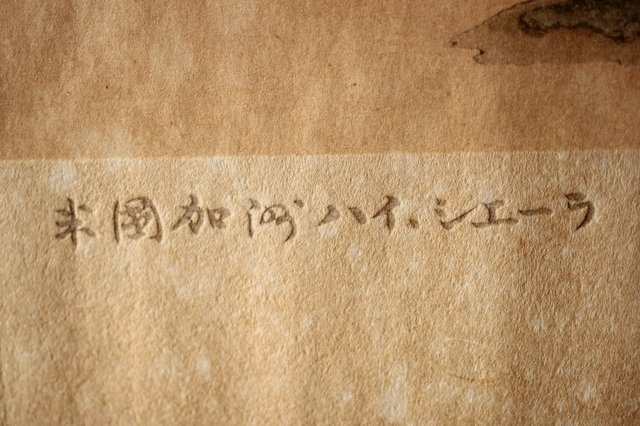 米國加洲ハイ、シエーラ